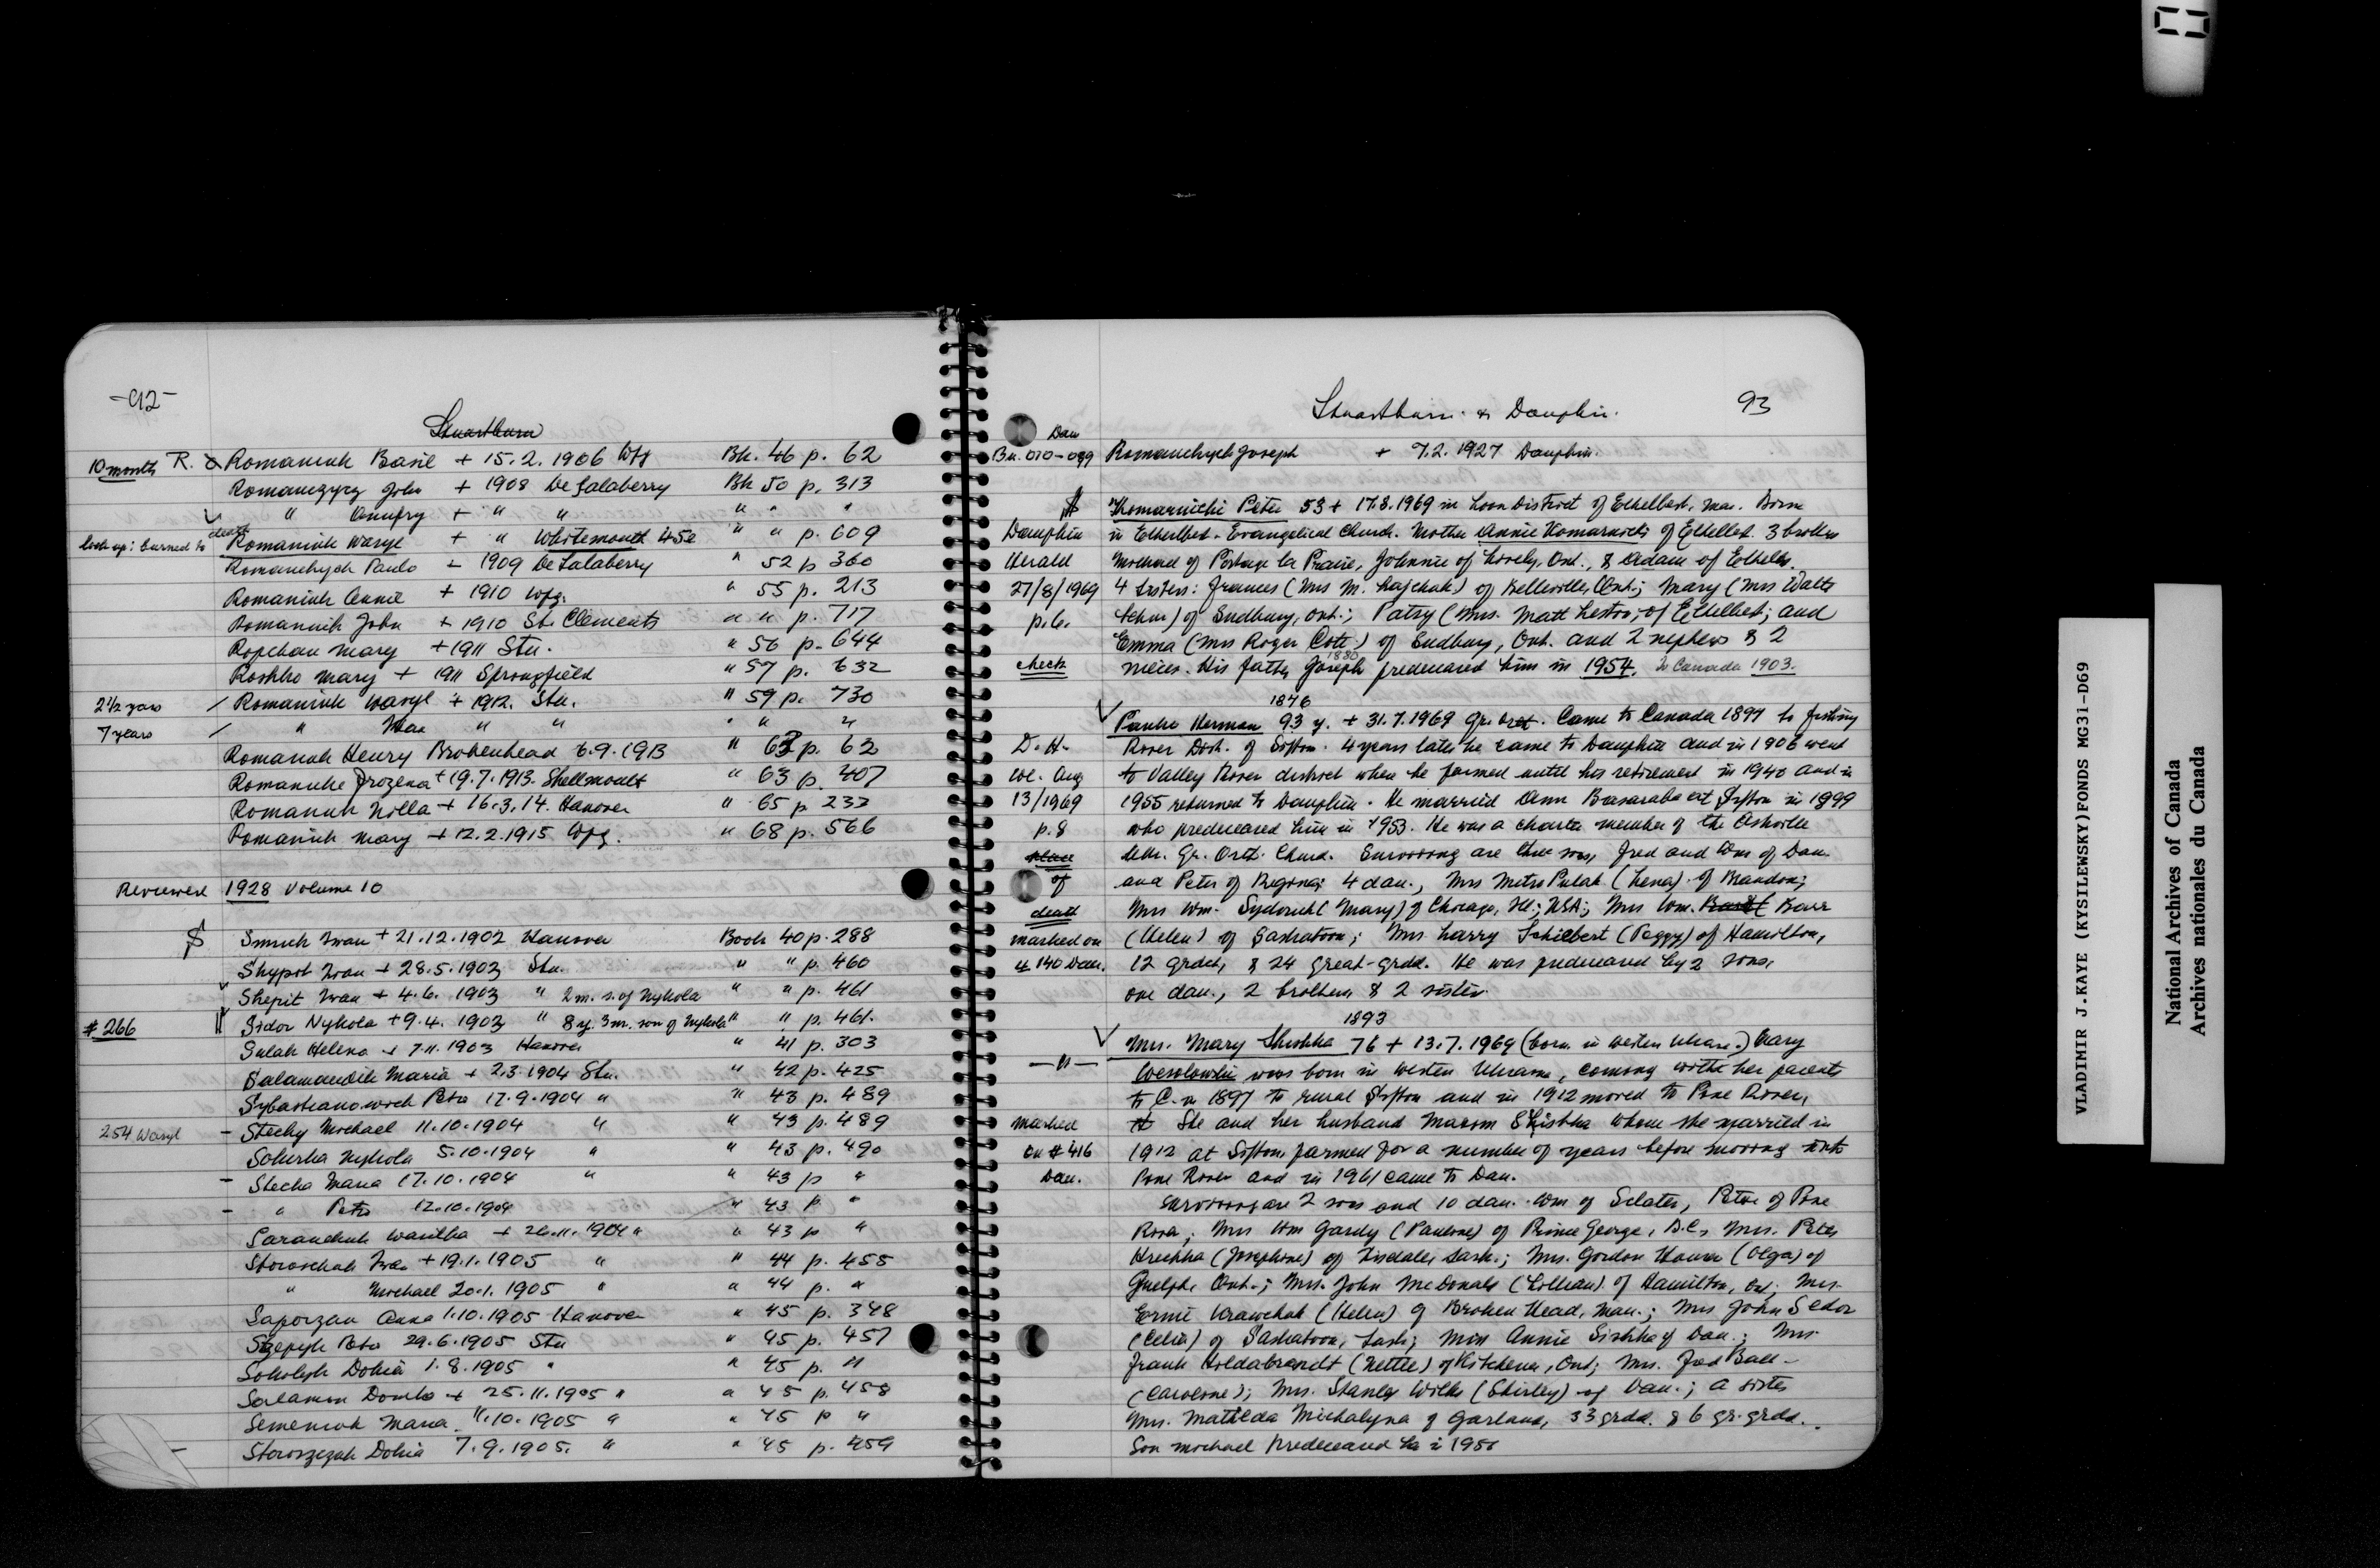 -92-
Stuartburn
10 month R. Romaniuk Basil + 15.2.1906 Wpg Bk. 46 p. 62
Romanczycz John + 1908 De Salaberry Bk 50 p. 313
" Onufry + " " " " "
look up: burned to death Romaniuk Wasyl + " Whitemouth 45e " " p. 609
Romanchych Paulo + 1909 De Salaberry " 52 p 360
Romaniuk Annie + 1910 Wpg. " 55 p. 213
Romaniuk John + 1910 St. Clements " " p. 717
Ropchan Mary + 1911 Stu. " 56 p. 644
Roshko Mary + 1911 Springfield " 57 p. 632
2½ years / Romaniuk Wasyl + 1912. Stu. " 59 p. 730
7 years / " " " " " "
Romaniuk Henry Brokenhead 6.9.1913 " 63 p. 62
Romaniuke Frozena + 19.7.1913. Shellmouth " 63 p. 407
Romaniuk Nilla + 16.3.14. Hanover " 65 p 232
Romaniuk Mary + 12.2.1915 Wpg. " 68 p. 566
Reviewed 1928 Volume 10
S Smuk Iwan + 21.12.1902 Hanover Book 40 p. 288
Shypot Iwan + 28.5.1903 Stu. " " p. 460
Shepit Iwan + 4.6.1903 " 2 m. s. of Nykola " " p. 461
# 266 Sidor Nykola + 9.4.1903 " 8 y. 3 m. son of Nykola " " p. 461.
Sulak Helena + 7.11.1903 Hanover " 41 p. 303
Salamandik Maria + 2.3.1904 Stu. " 42 p. 425
Sybastianowich Petro 17.9.1904 " " 43 p. 489
254 Wasyl - Stecky Michael 11.10.1904 " " 43 p. 489
Sokirka Nykola 5.10.1904 " " 43 p. 490
- Stecka Maria 17.10.1904 " " 43 p "
- " Petro 12.10.1904 " 43 p. "
Saranchuk Wasilka + 26.11.1904 " " 43 p "
Storoschuk Iwan + 19.1.1905 " " 44 p. 455
" Michael 20.1.1905 " " 44 p. "
Saporzan Anna 1.10.1905 Hanover " 45 p. 348
Szepyk Petro 29.6.1905 Stu " 45 p. 457
Sokolyk Dokia 1.8.1905 " " 45 p. "
Salamon Domka + 25.11.1905 " " 45 p. 458
Semeniuk Maria 11.10.1905 " " 45 p "
- Storoszczuk Dokia 7.9.1905. " " 45 p. 459
Stuartburn & Dauphin. 93
Dau
Bu. 010-099 Romanchych Joseph + 7.2.1927 Dauphin.
Komarnicki Peter 53 + 17.8.1969 in Loon District of Ethelbert, Man. Born
Dauphin in Ethelbert. Evangelical Church. Mother Annie Komarnicki of Ethelbert. 3 brothers
Herald Michael of Portage la Prairie, Johnnie of Lively, Ont., & Adam of Ethelbert.
27/8/1969 4 sisters: Frances (Mrs M. Hajchuk) of Belleville, Ont.; Mary (Mrs Walter
p. 6. ) of Sudbury, Ont.; Patsy (Mrs. Matt Leston; of Ethelbert; and
Emma (Mrs Roger Cote) of Sudbury, Ont. and 2 nephews & 2
1880
check nieces. His father Joseph predeceased him in 1954. To Canada 1903.
1876
Paulko Herman 93 y. + 31.7.1969 Gr. Ort. Came to Canada 1897 to Fishing
D. H. River Distr. of Sifton. 4 years later he came to Dauphin and in 1906 went
We. Aug to Valley River district where he farmed until his retirement in 1940 and in
13/1969 1955 returned to Dauphin. He married Ann Basaraba at Sifton in 1899
p. 8 who predeceased him in 1953. He was a charter member of the Ashville
place Ukr. Gr. Ort. Church. Surviving are three sons, Fred and Wm of Dau.
of and Peter of Regina; 4 dau., Mrs Metro Pulak (Lena) of Brandon;
death Mrs Wm. Sydoruk (Mary) of Chicago, Ill., USA; Mrs Wm. Barr
marked on (Helen) of Saskatoon; Mrs. Larry Schiebert (Peggy) of Hamilton,
# 140 Dau. 12 grdch, & 24 great-grdd. He was predeceased by 2 sons,
one dau., 2 brothers & 2 sister.
1893
Mrs. Mary Shishka 76 + 13.7.1969 (born in Western Ukraine.) Mary
— " — Wesolowski was born in Western Ukraine, coming with her parents
to C. in 1897 to rural Sifton and in 1912 moved to Pine River,
marked She and her husband Maxim Shishka whom she married in
on # 416 1912 at Sifton, farmed for a number of years before moving into
Dau. Pine River and in 1961 came to Dau.
Surviving are 2 sons and 10 dau. Wm of Sclater, Peter of Pine
River; Mrs Wm Gardy (Pauline) of Prince George, B.C., Mrs. Peter
Hrechka (Josephine) of Tisdale, Sask.; Mrs. Gordon (Olga) of
Guelph, Ont.; Mrs. John McDonald (Lillian) of Hamilton, Ont; Mrs.
Ernie Krawchuk (Helen) of Broken Head, Man.; Mrs John Sedor
(Celia) of Saskatoon, Sask; Miss Annie Sishka of Dau.; Mrs.
Frank Hildabrandt (Nettie) of Kitchener, Ont; Mrs. Joe Ball
(Caroline); Mrs. Stanley Wilks (Shirley) of Dau.; a sister
Mrs. Matilda Michalyna of Garland, 33 grdd. & 6 gr. grdd.
Son Michael predeceased her in 1956
VLADIMIR J.KAYE (KYSILEWSKY)FONDS MG31-D69
National Archives of Canada
Archives nationales du Canada